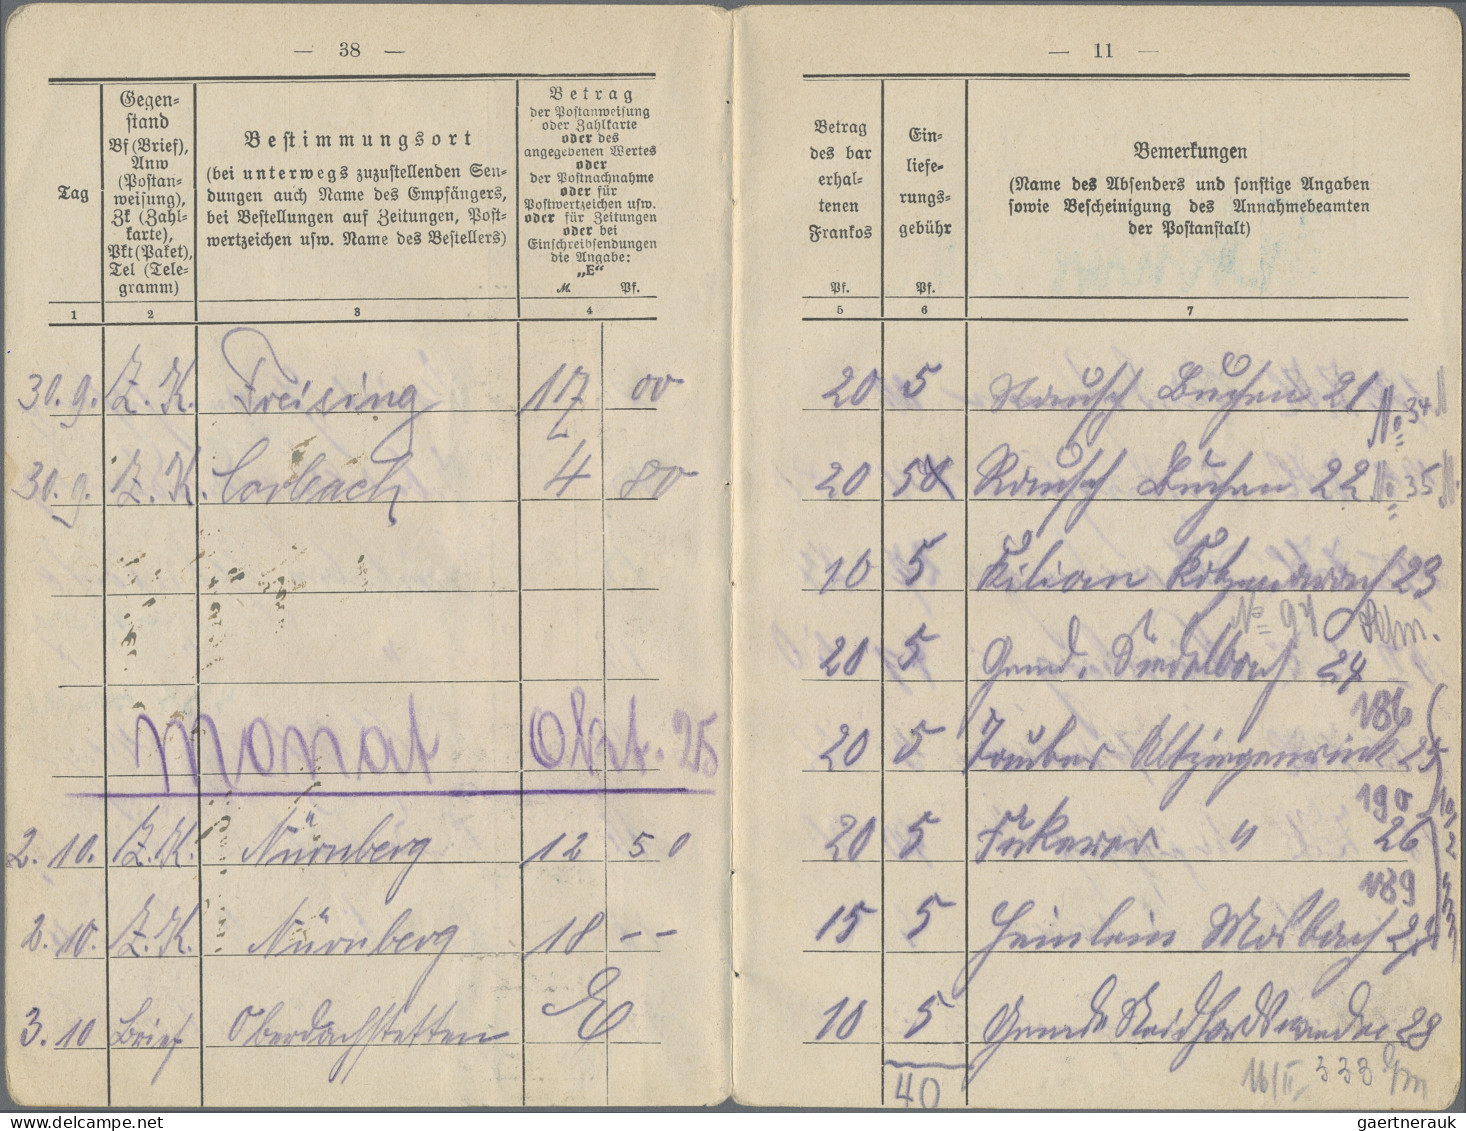 — 38 —
Tag
Gegen=
ſtand
Bf (Brief),
Anw
(Poſtan=
weiſung),
Zk (Zahl=
karte),
Pkt (Paket),
Tel (Tele=
gramm)
Beſtimmungsort
(bei unterwegs zuzuſtellenden Sen=
dungen auch Name des Empfängers,
bei Beſtellungen auf Zeitungen, Poſt=
wertzeichen uſw. Name des Beſtellers)
Betrag
der Poſtanweiſung
oder Zahlkarte
oder des
angegebenen Wertes
oder
der Poſtnachnahme
oder für
Poſtwertzeichen uſw.
oder für Zeitungen
oder bei
Einſchreibſendungen
die Angabe:
„E“
M. Pf.
1 2 3 4
30. 9. Z. K. Freising 17 00
30. 9. Z. K. Corbach 4 80
Monat Okt. 25
2. 10. Z. K. Nürnberg 12 50
2. 10. Z. K. Nürnberg 18 --
3. 10 Brief Oberdachstetten E
— 11 —
Betrag
des bar
erhal=
tenen
Frankos
Pf.
Ein=
liefe=
rungs=
gebühr
Pf.
Bemerkungen
(Name des Abſenders und ſonſtige Angaben
ſowie Beſcheinigung des Annahmebeamten
der Poſtanſtalt)
5 6 7
20 5 Rausch Buchen 21 No 34
20 5 Rausch Buchen 22 No 35
10 5 Kilian 23
No 97
20 5 Gemd. 24
186
20 5 Tauber 25
190
20 5 " 26
189
15 5 Heinlein Mosbach 27
10 5 Gemde 28
40 16/II. 333
gaertnerauk